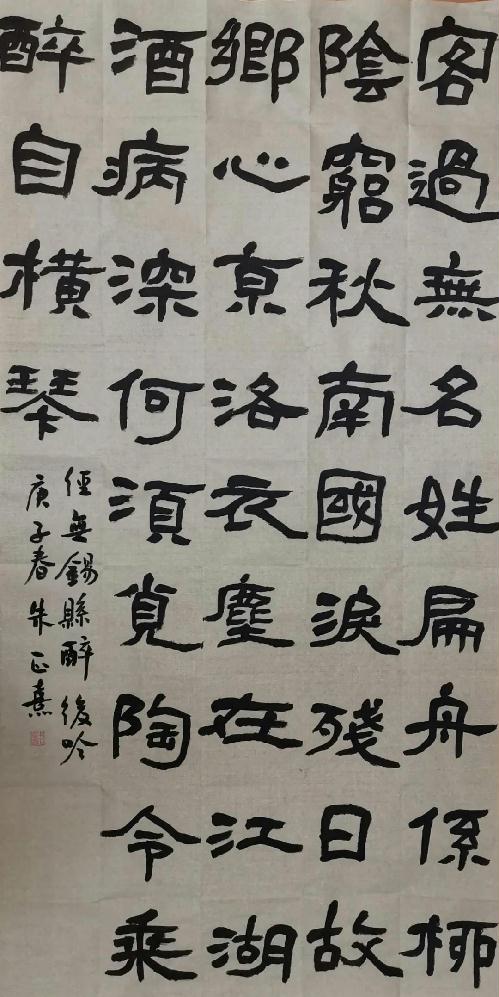 客過無名姓扁舟係柳
陰窮秋南國淚殘日故
鄉心亰洛衣塵在江湖
酒病深何須覓陶令乘
醉自橫琴
經無錫縣醉後吟
庚子春朱正熹